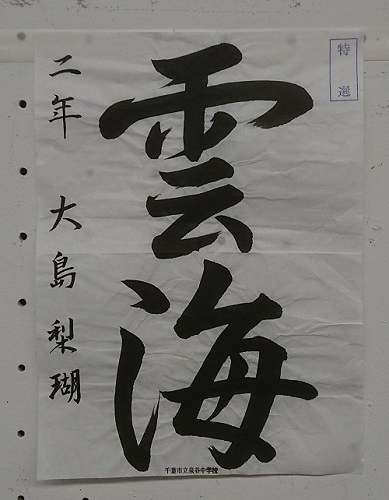 特選
雲海
二年 大島梨瑚
千葉市立泉谷中学校